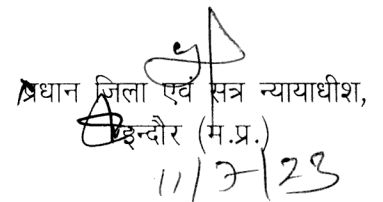 प्रधान जिला एवं सत्र न्यायाधीश,
इन्दौर (म.प्र.)
11/7/23